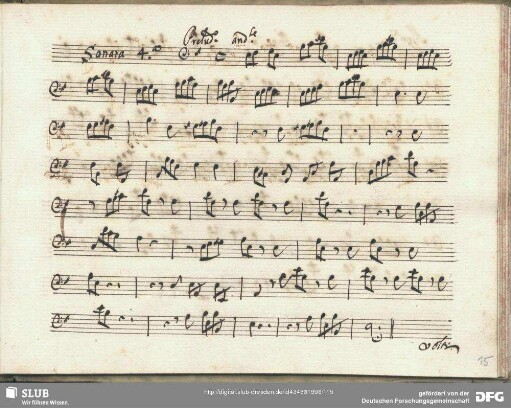 Sonata 4.ª Prelud.º and.te
Volti
15
SLUB
Wir führen Wissen.
http://digital.slub-dresden.de/id434391998/115
gefördert von der
Deutschen Forschungsgemeinschaft
DFG